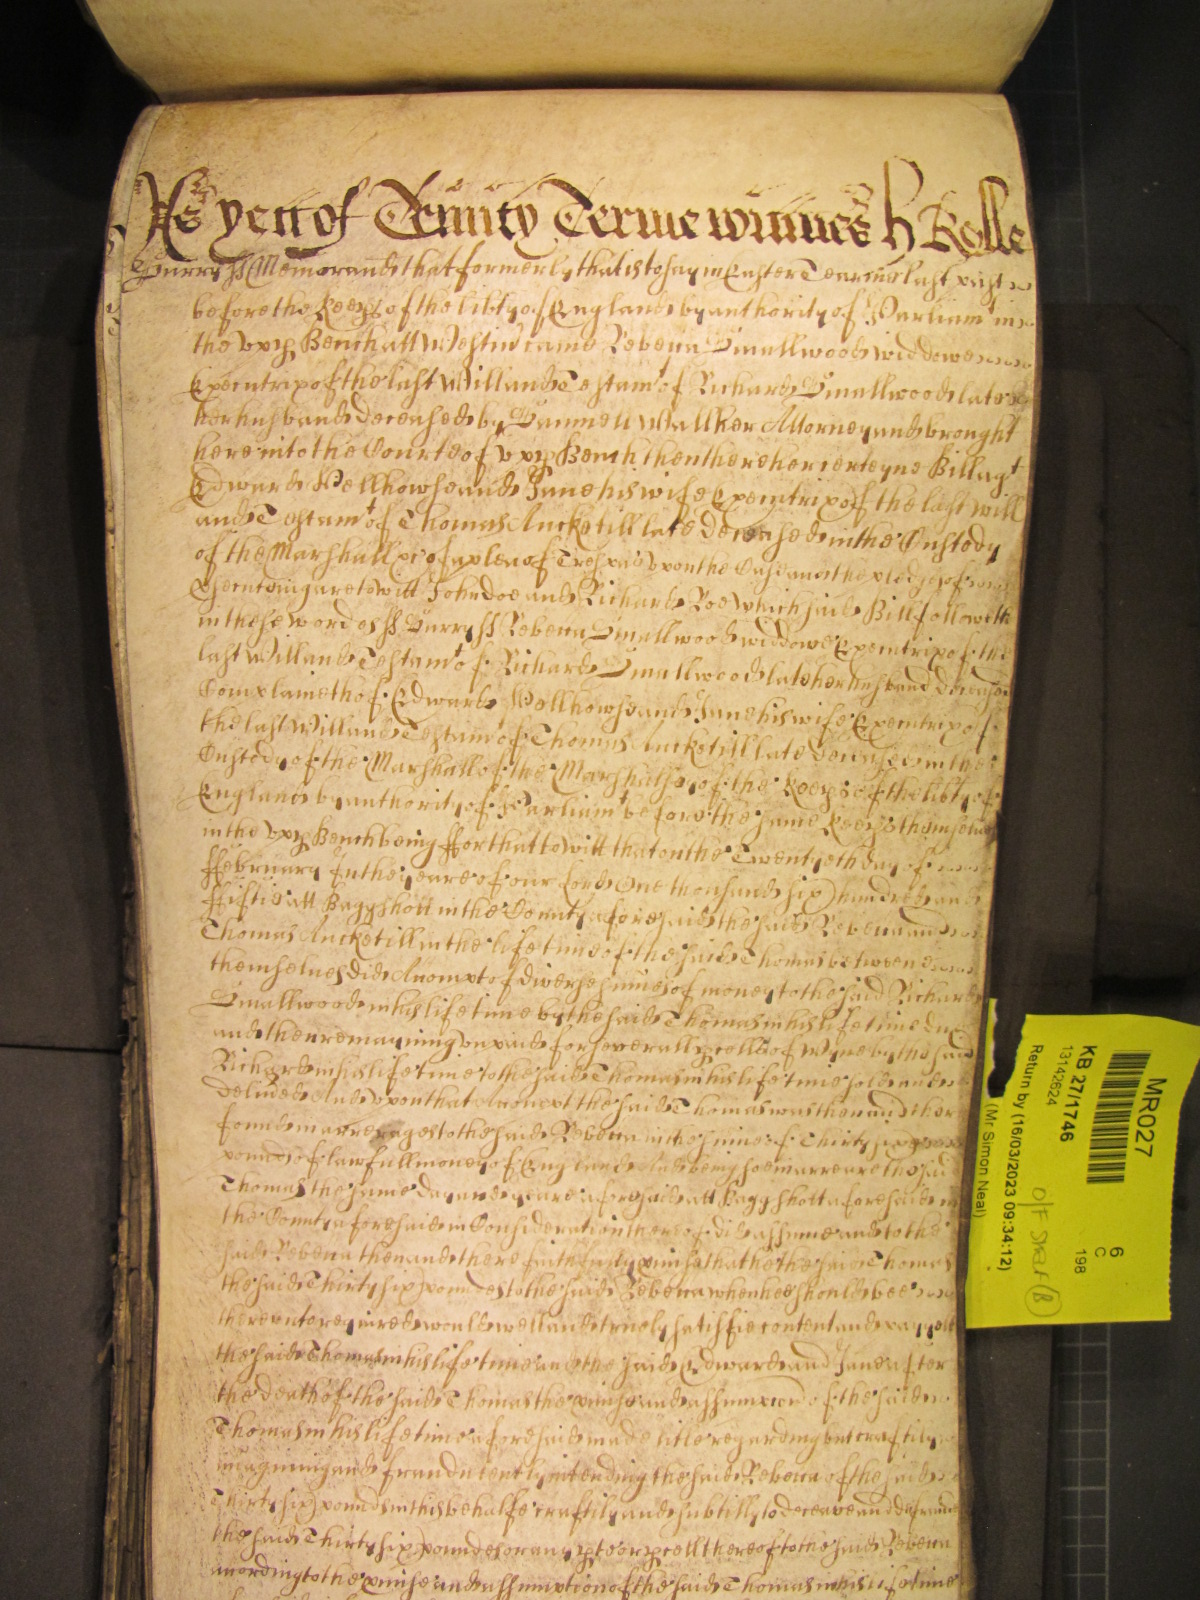 As yett of Trinity Terme wittnes h Rolle
Surry ss Memorand that formerly that is to say in Easter Tearme last past
before the Keeps of the libty of England by authority of Parliam in
the vpp Bench att Westm came Rebecca Smallwood widdowe
Executrix of the last Will and Testamt of Richard Smallwood late
her husband deceased by Samuell Wallker Attorney and brought
here into the Courte of vpp Bench then there her certeyne Bill agt
Edward Wellhowse and Jane his wife Executrix of the last Will
and Testamt of Thomas Ancketill late deceased in the Custody
of the Marshall &c of a plea of Trespas vpon the Case and the pledges of
psecuting are to witt John doe and Richard Roe which said Bill followeth
in these wordes ss Surry ss Rebecca Smallwood widdowe Executrix of the
last Will and Testamt of Richard Smallwood late her husband deceased
Complaineth of Edward Wellhowse and Jane his wife Executrix of
the last Will and Testamt of Thomas Ancketill late deceased in the
Custody of the Marshall of the Marshalsey of the Keeps of the libty of
England by authority of Parliamt before the same Keeps themselves
in the vpp Bench being ffor that to witt that on the Twentyeth day of
ffebruary In the yeare of our Lord One thousand six hundred and
ffiftie att Baggshott in the County aforesaid the said Rebecca and
Thomas Ancketill in the life time of the said Thomas betweene
themselues did Accompt of diverse summes of money to the said Richard
Smallwood in his life time by the said Thomas in his life time due
and then remayning vnpaid for severall pcells of Wyne by the said
Richard in his life time to the said Thomas in his life time sold and
deliued And vpon that Accompt the said Thomas was then and there
found in arrerages to the said Rebecca in the summe of Thirty six
pounds of lawfull money of England And being soe in arreare the said
Thomas the same day and yeare aforesaid att Baggshott aforesaid in
the County aforesaid in Consideration thereof did assume and to the
said Rebecca then and there faithfully pmise that he the said Thomas
the said Thirty six poundes to the said Rebecca when hee should bee
therevnto required would well and truely satisfie content and pay yett
the said Thomas in his life time and the said Edward and Jane after
the death of the said Thomas the pmise and assumpcon of the said
Thomas in his life time aforesaid made litle regarding but craftily
imagining and fraudulently intending the said Rebecca of the said
Thirty six pounds in this behalfe craftily and subtilly to deceave and defraud
the said Thirty six poundes or any pte or pcell thereof to the said Rebecca
according to the pmise and assumption of the said Thomas in his life time
MR027
KB 27/1746
13142624
Return by (16/03/2023 09:34:12)
(Mr Simon Neal)
6
C
198